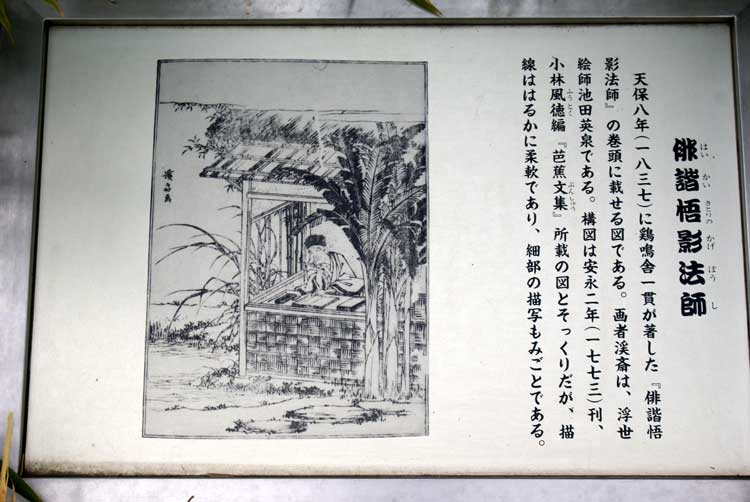 俳諧悟影法師
はいかいさとりのかげぼうし
天保八年(一八三七)に鶏鳴舎一貫が著した『俳諧悟
影法師』の巻頭に載せる図である。画者渓斎は、浮世
絵師池田英泉である。構図は安永二年(一七七三)刊、
小林風徳編『芭蕉文集』所載の図とそっくりだが、描
ふうとく
ぶんしゅう
線ははるかに柔軟であり、細部の描写もみごとである。